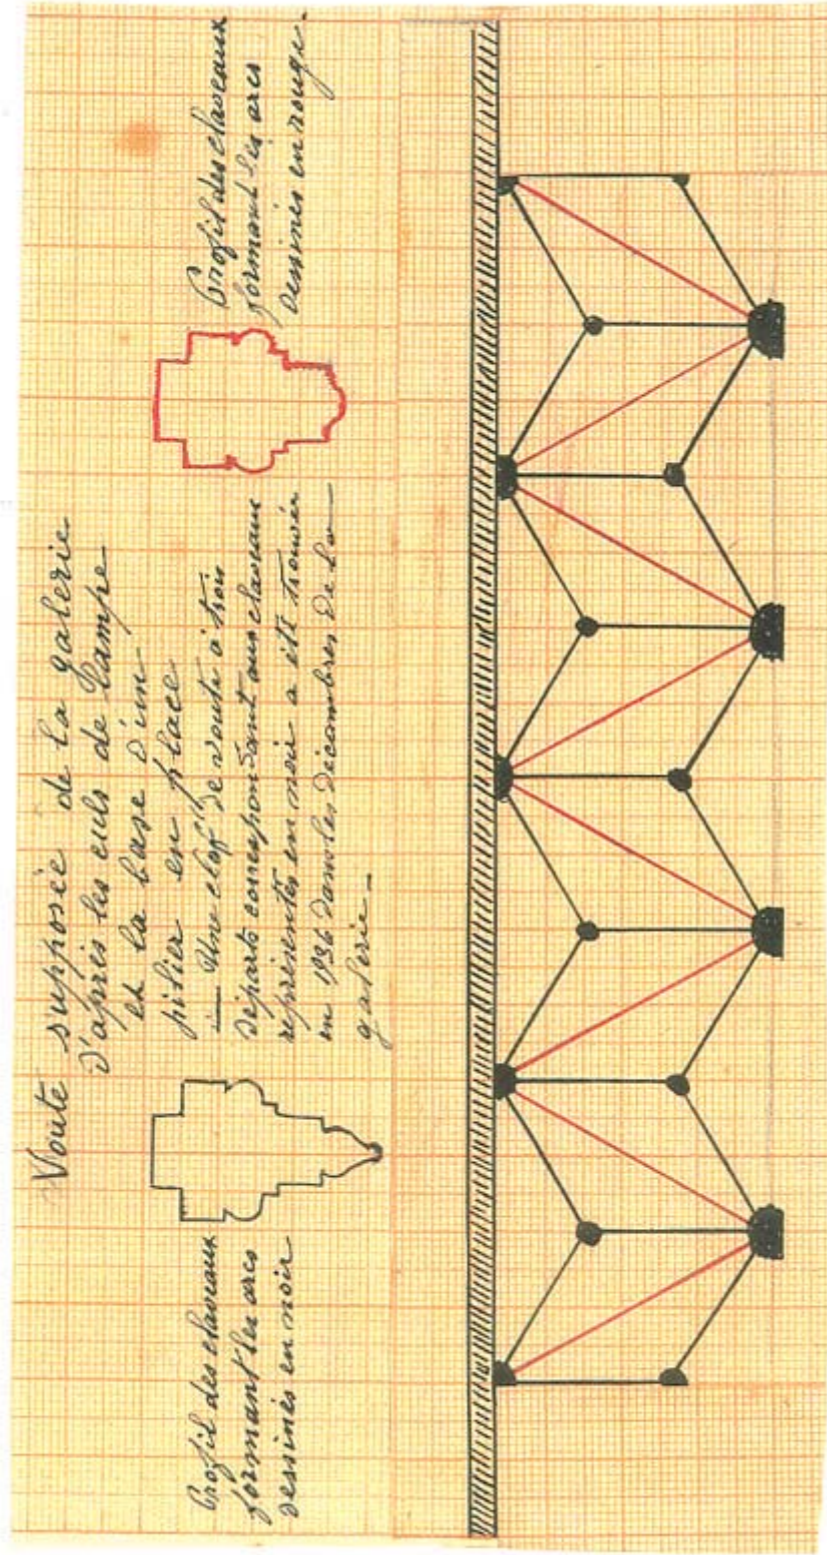 Voute supposée de la galerie
d'après les culs de lampe
et la base d'un
pilier en place
— Une clef de voute à trois
départs correspondant aux claveaux
représentés en noir a été trouvée
en 1936 dans les décombres de la
galerie —
Profil des claveaux
formant les arcs
dessinés en noir
Profil des claveaux
formant les arcs
dessinés en rouge.